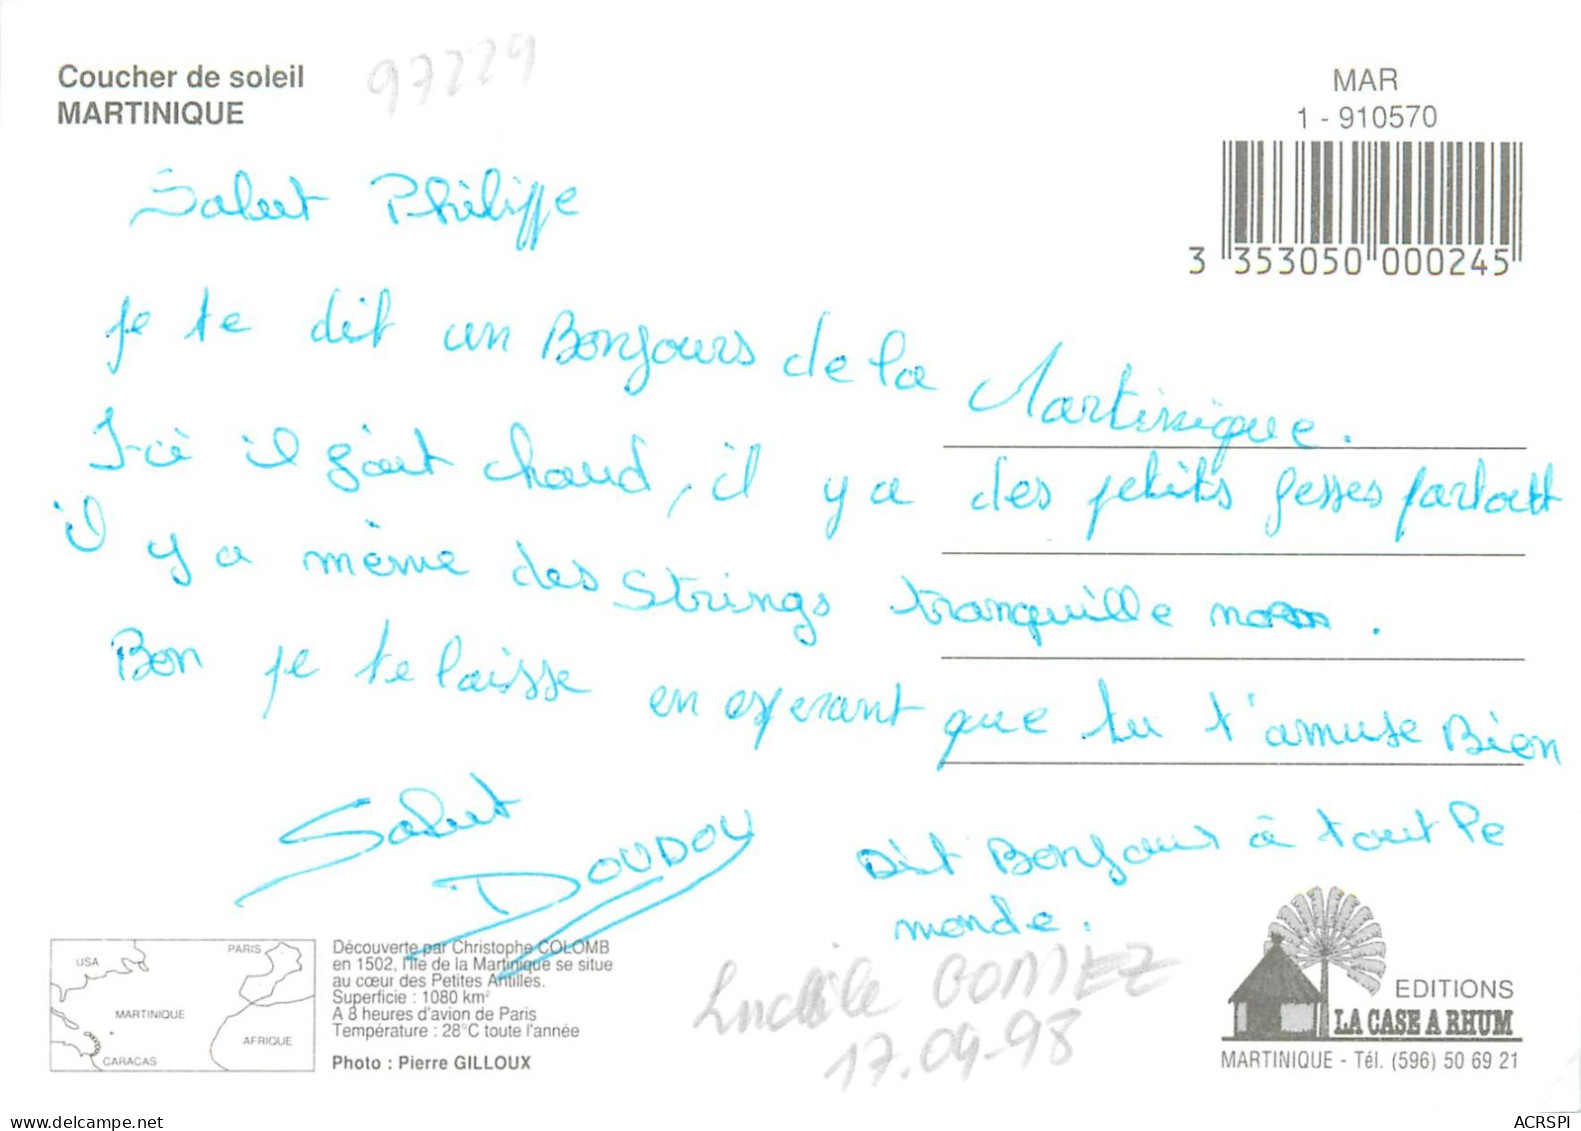 Coucher de soleil
MARTINIQUE
97229
MAR
1 - 910570
3 353050 000245
Salut Philippe
je te dit un Bonjours de la Martinique.
I-ci il fait chaud, il y a des petits fesses partout
il y a même des strings tranquille
Bon je te laisse en esperant que tu t'amuse Bien
Salut
DOUDOU
Dit Bonjours à tout le
monde.
Lucille GOMEZ
17.04-98
USA
PARIS
MARTINIQUE
AFRIQUE
CARACAS
Découverte par Christophe COLOMB
en 1502, l'île de la Martinique se situe
au cœur des Petites Antilles.
Superficie : 1080 km²
A 8 heures d'avion de Paris
Température : 28°C toute l'année
Photo : Pierre GILLOUX
EDITIONS
LA CASE A RHUM
MARTINIQUE - Tél. (596) 50 69 21
ACRSPI